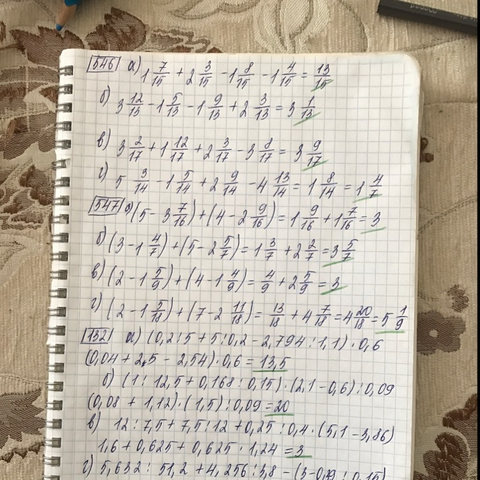 546 а) 1 7/15 + 2 3/15 - 1 8/15 - 1 4/15 = 13/15
б) 3 12/13 - 1 5/13 - 1 9/13 + 2 3/13 = 3 1/13
в) 3 2/17 + 1 12/17 + 2 3/17 - 3 8/17 = 3 9/17
г) 5 3/14 - 1 5/14 + 2 9/14 - 4 13/14 = 1 8/14 = 1 4/7
547 а) (5 - 3 7/16) + (4 - 2 9/16) = 1 9/16 + 1 7/16 = 3
б) (3 - 1 4/7) + (5 - 2 5/7) = 1 3/7 + 2 2/7 = 3 5/7
в) (2 - 1 5/9) + (4 - 1 4/9) = 4/9 + 2 5/9 = 3
г) (2 - 1 5/18) + (7 - 2 11/18) = 13/18 + 4 7/18 = 4 20/18 = 5 1/9
132 а) (0,2 : 5 + 5 : 0,2 - 2,794 : 1,1) · 0,6
(0,04 + 2,5 - 2,54) · 0,6 = 13,5
б) (1 : 12,5 + 0,168 : 0,15) · (2,1 - 0,6) : 0,09
(0,08 + 1,12) · (1,5) : 0,09 = 20
в) 12 : 7,5 + 7,5 : 12 + 0,25 : 0,4 · (5,1 - 3,86)
1,6 + 0,625 + 0,625 · 1,24 = 3
г) 5,632 : 51,2 + 4,256 : 3,8 - (3 -